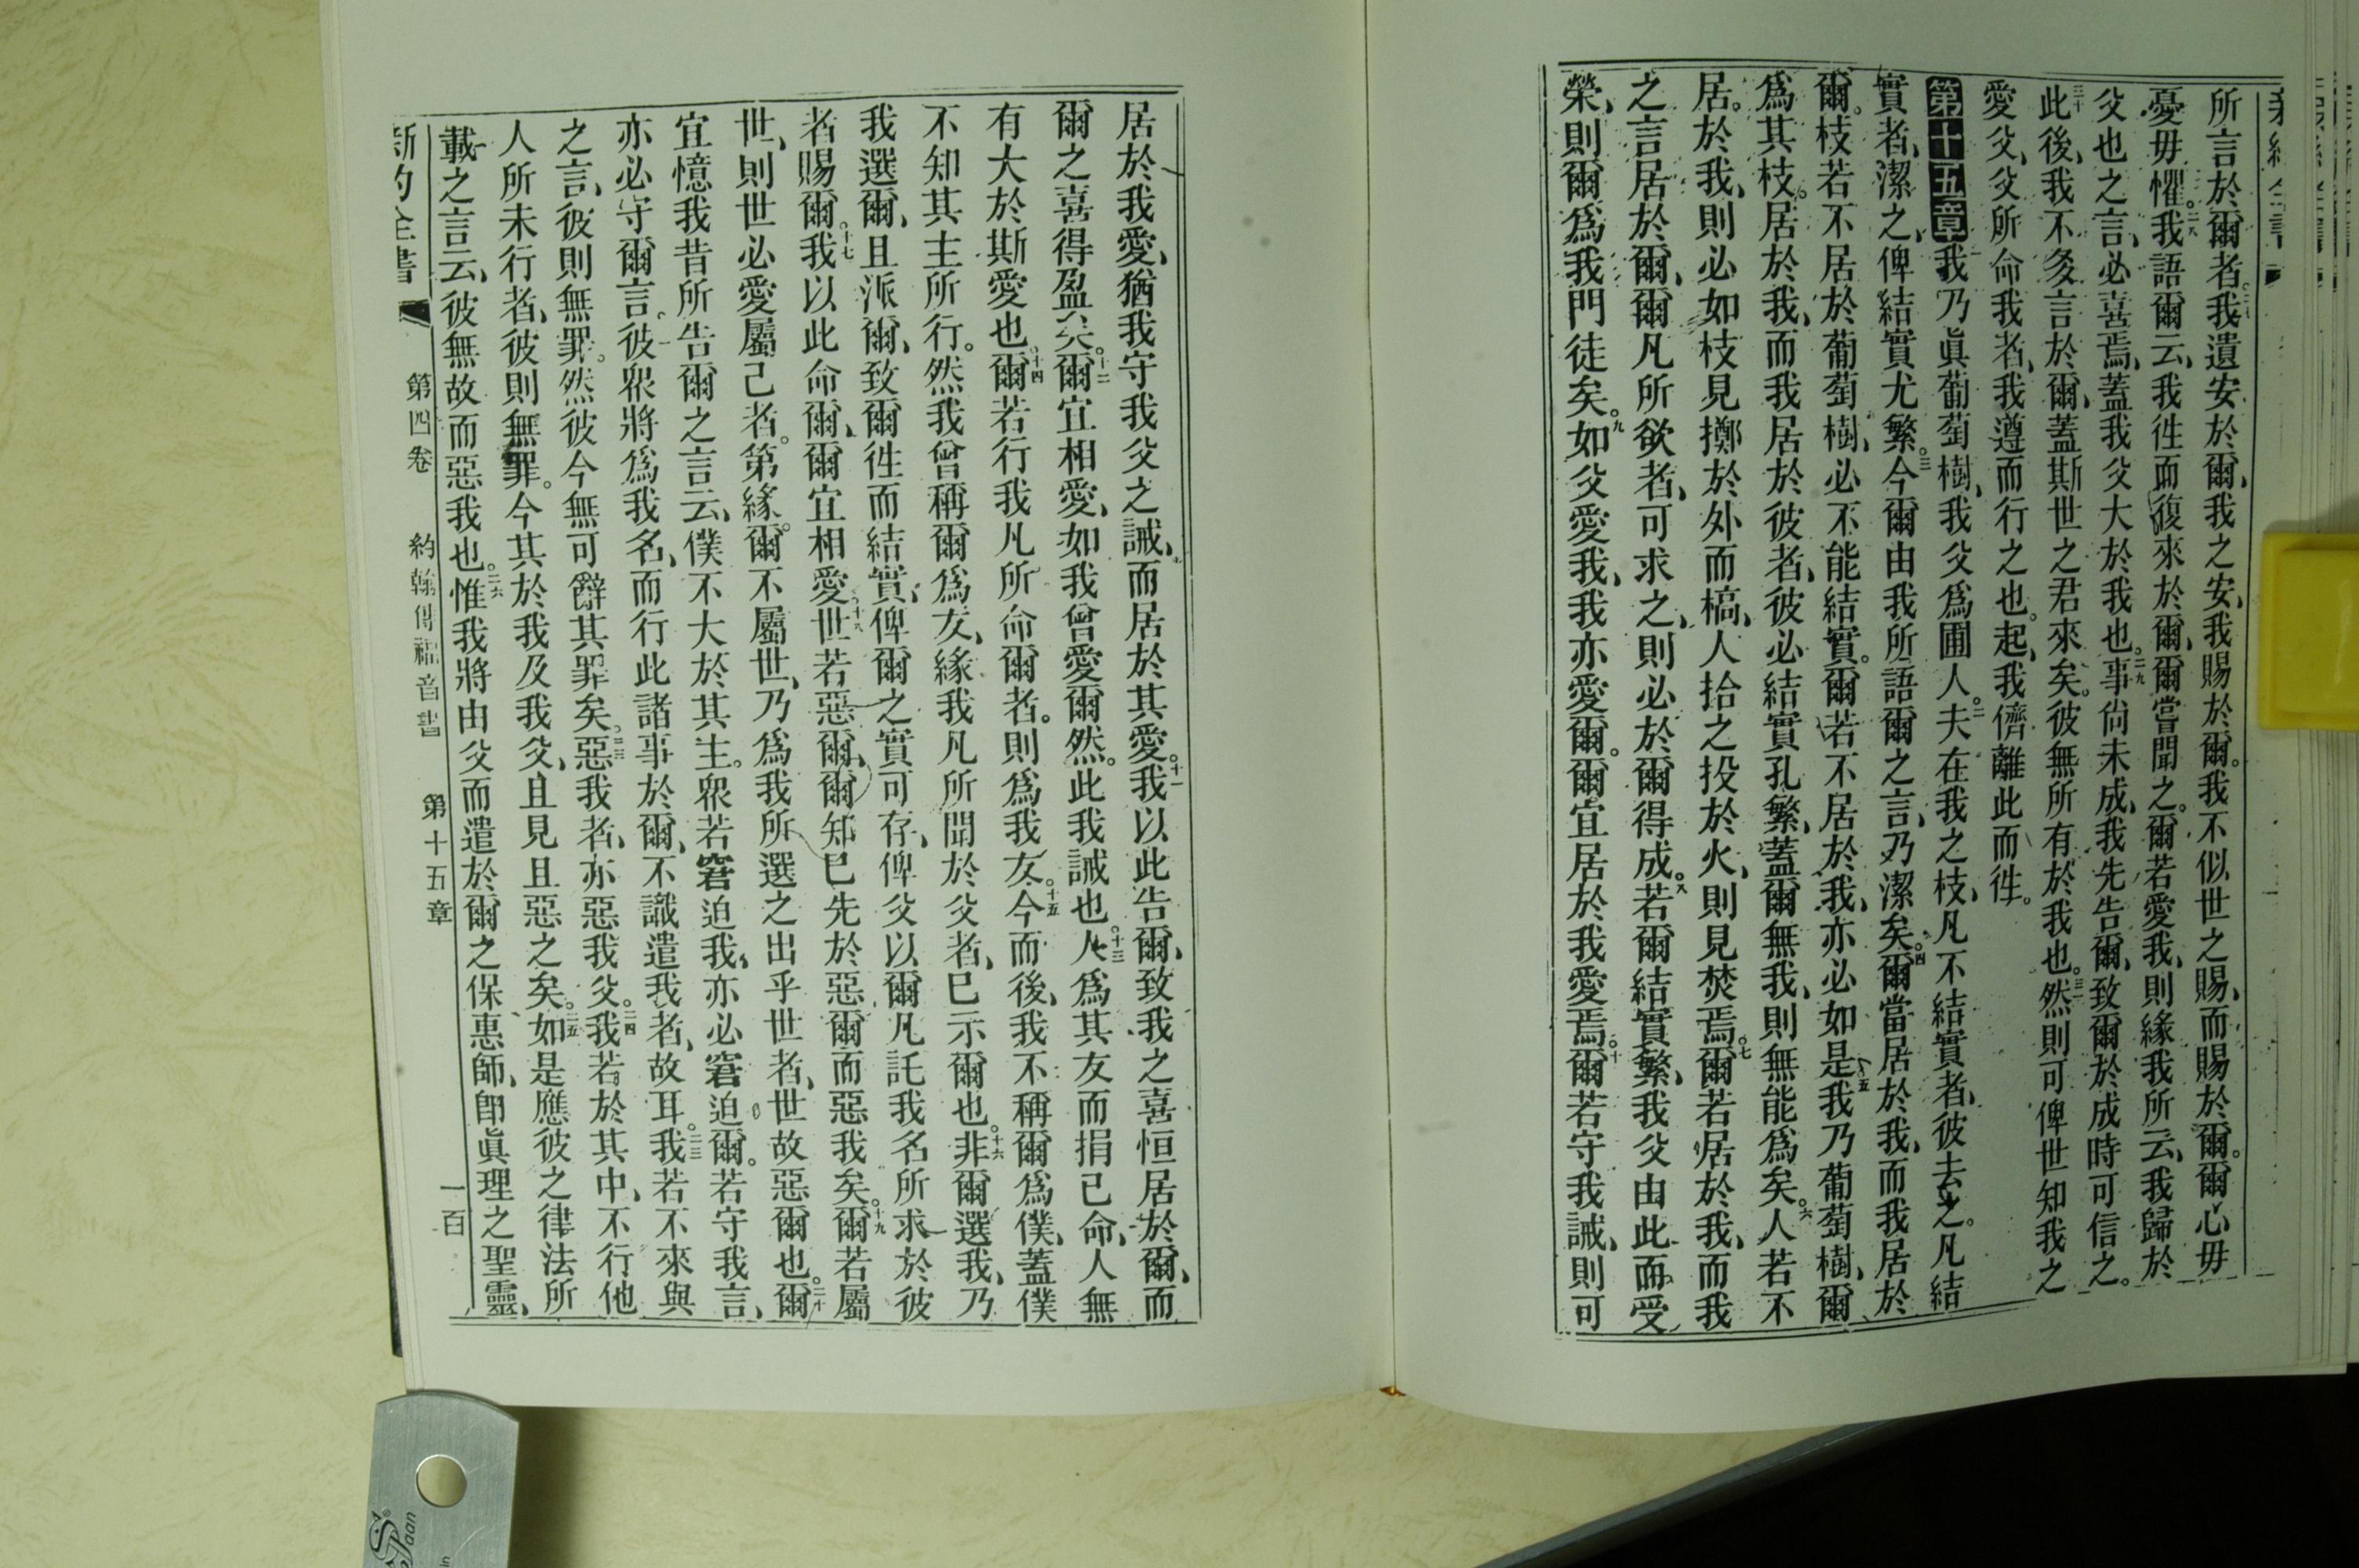 所言於爾者。二七我遺安於爾、我之安、我賜於爾。我不似世之賜、而賜於爾。爾心毋
憂毋懼。二八我語爾云、我徃而復來於爾、爾嘗聞之。爾若愛我、則緣我所云、我歸於
父也之言、必喜焉、蓋我父大於我也。二九事尙未成、我先告爾、致爾於成時可信之。
三十此後、我不多言於爾、蓋斯世之君來矣。彼無所有於我也。三一然則可俾世知我之
愛父、父所命我者、我遵而行之也。起、我儕離此而徃。
第十五章我乃眞葡萄樹、我父爲圃人。二夫在我之枝、凡不結實者、彼去之。凡結
實者、潔之、俾結實尤繁。三今爾由我所語爾之言、乃潔矣。四爾當居於我、而我居於
爾。枝若不居於葡萄樹、必不能結實。爾若不居於我、亦必如是。五我乃葡萄樹、爾
爲其枝。居於我、而我居於彼者、彼必結實孔繁、蓋爾無我、則無能爲矣。六人若不
居。於我、則必如枝見擲於外而槁、人拾之投於火、則見焚焉。七爾若居於我、而我
之言居於爾、爾凡所欲者、可求之、則必於爾得成。八若爾結實繁、我父由此而受
榮、則爾爲我門徒矣。九如父愛我、我亦愛爾。爾宜居於我愛焉。十爾若守我誡、則可
居於我愛、猶我守我父之誡、而居於其愛。十一我以此告爾、致我之喜恒居於爾、而
爾之喜得盈矣。十二爾宜相愛、如我曾愛爾然。此我誡也。十三人爲其友而捐己命、人無
有大於斯愛也。十四爾若行我凡所命爾者。則爲我友。十五今而後、我不稱爾爲僕、蓋僕
不知其主所行。然我曾稱爾爲友、緣我凡所聞於父者、已示爾也。十六非爾選我、乃
我選爾、且派爾、致爾徃而結實、俾爾之實可存、俾父以爾凡託我名所求於彼
者賜爾。十七我以此命爾、爾宜相愛。十八世若惡爾、爾知已先於惡爾而惡我矣。十九爾若屬
世、則世必愛屬己者。第緣爾不屬世、乃爲我所選之出乎世者、世故惡爾也。二十爾
宜憶我昔所告爾之言云、僕不大於其主。衆若窘迫我、亦必窘迫爾。若守我言、
亦必守爾言。彼衆將爲我名、而行此諸事於爾、不識遣我者、故耳。二二我若不來與
之言、彼則無罪。然彼今無可辭其罪矣。二三惡我者、亦惡我父。二四我若於其中、不行他
人所未行者、彼則無罪。今其於我及我父、且見且惡之矣。二五如是應彼之律法所
載之言云、彼無故而惡我也。二六惟我將由父而遣於爾之保惠師、卽眞理之聖靈、
新約全書 第四卷 約翰傳福音書 第十五章 一百